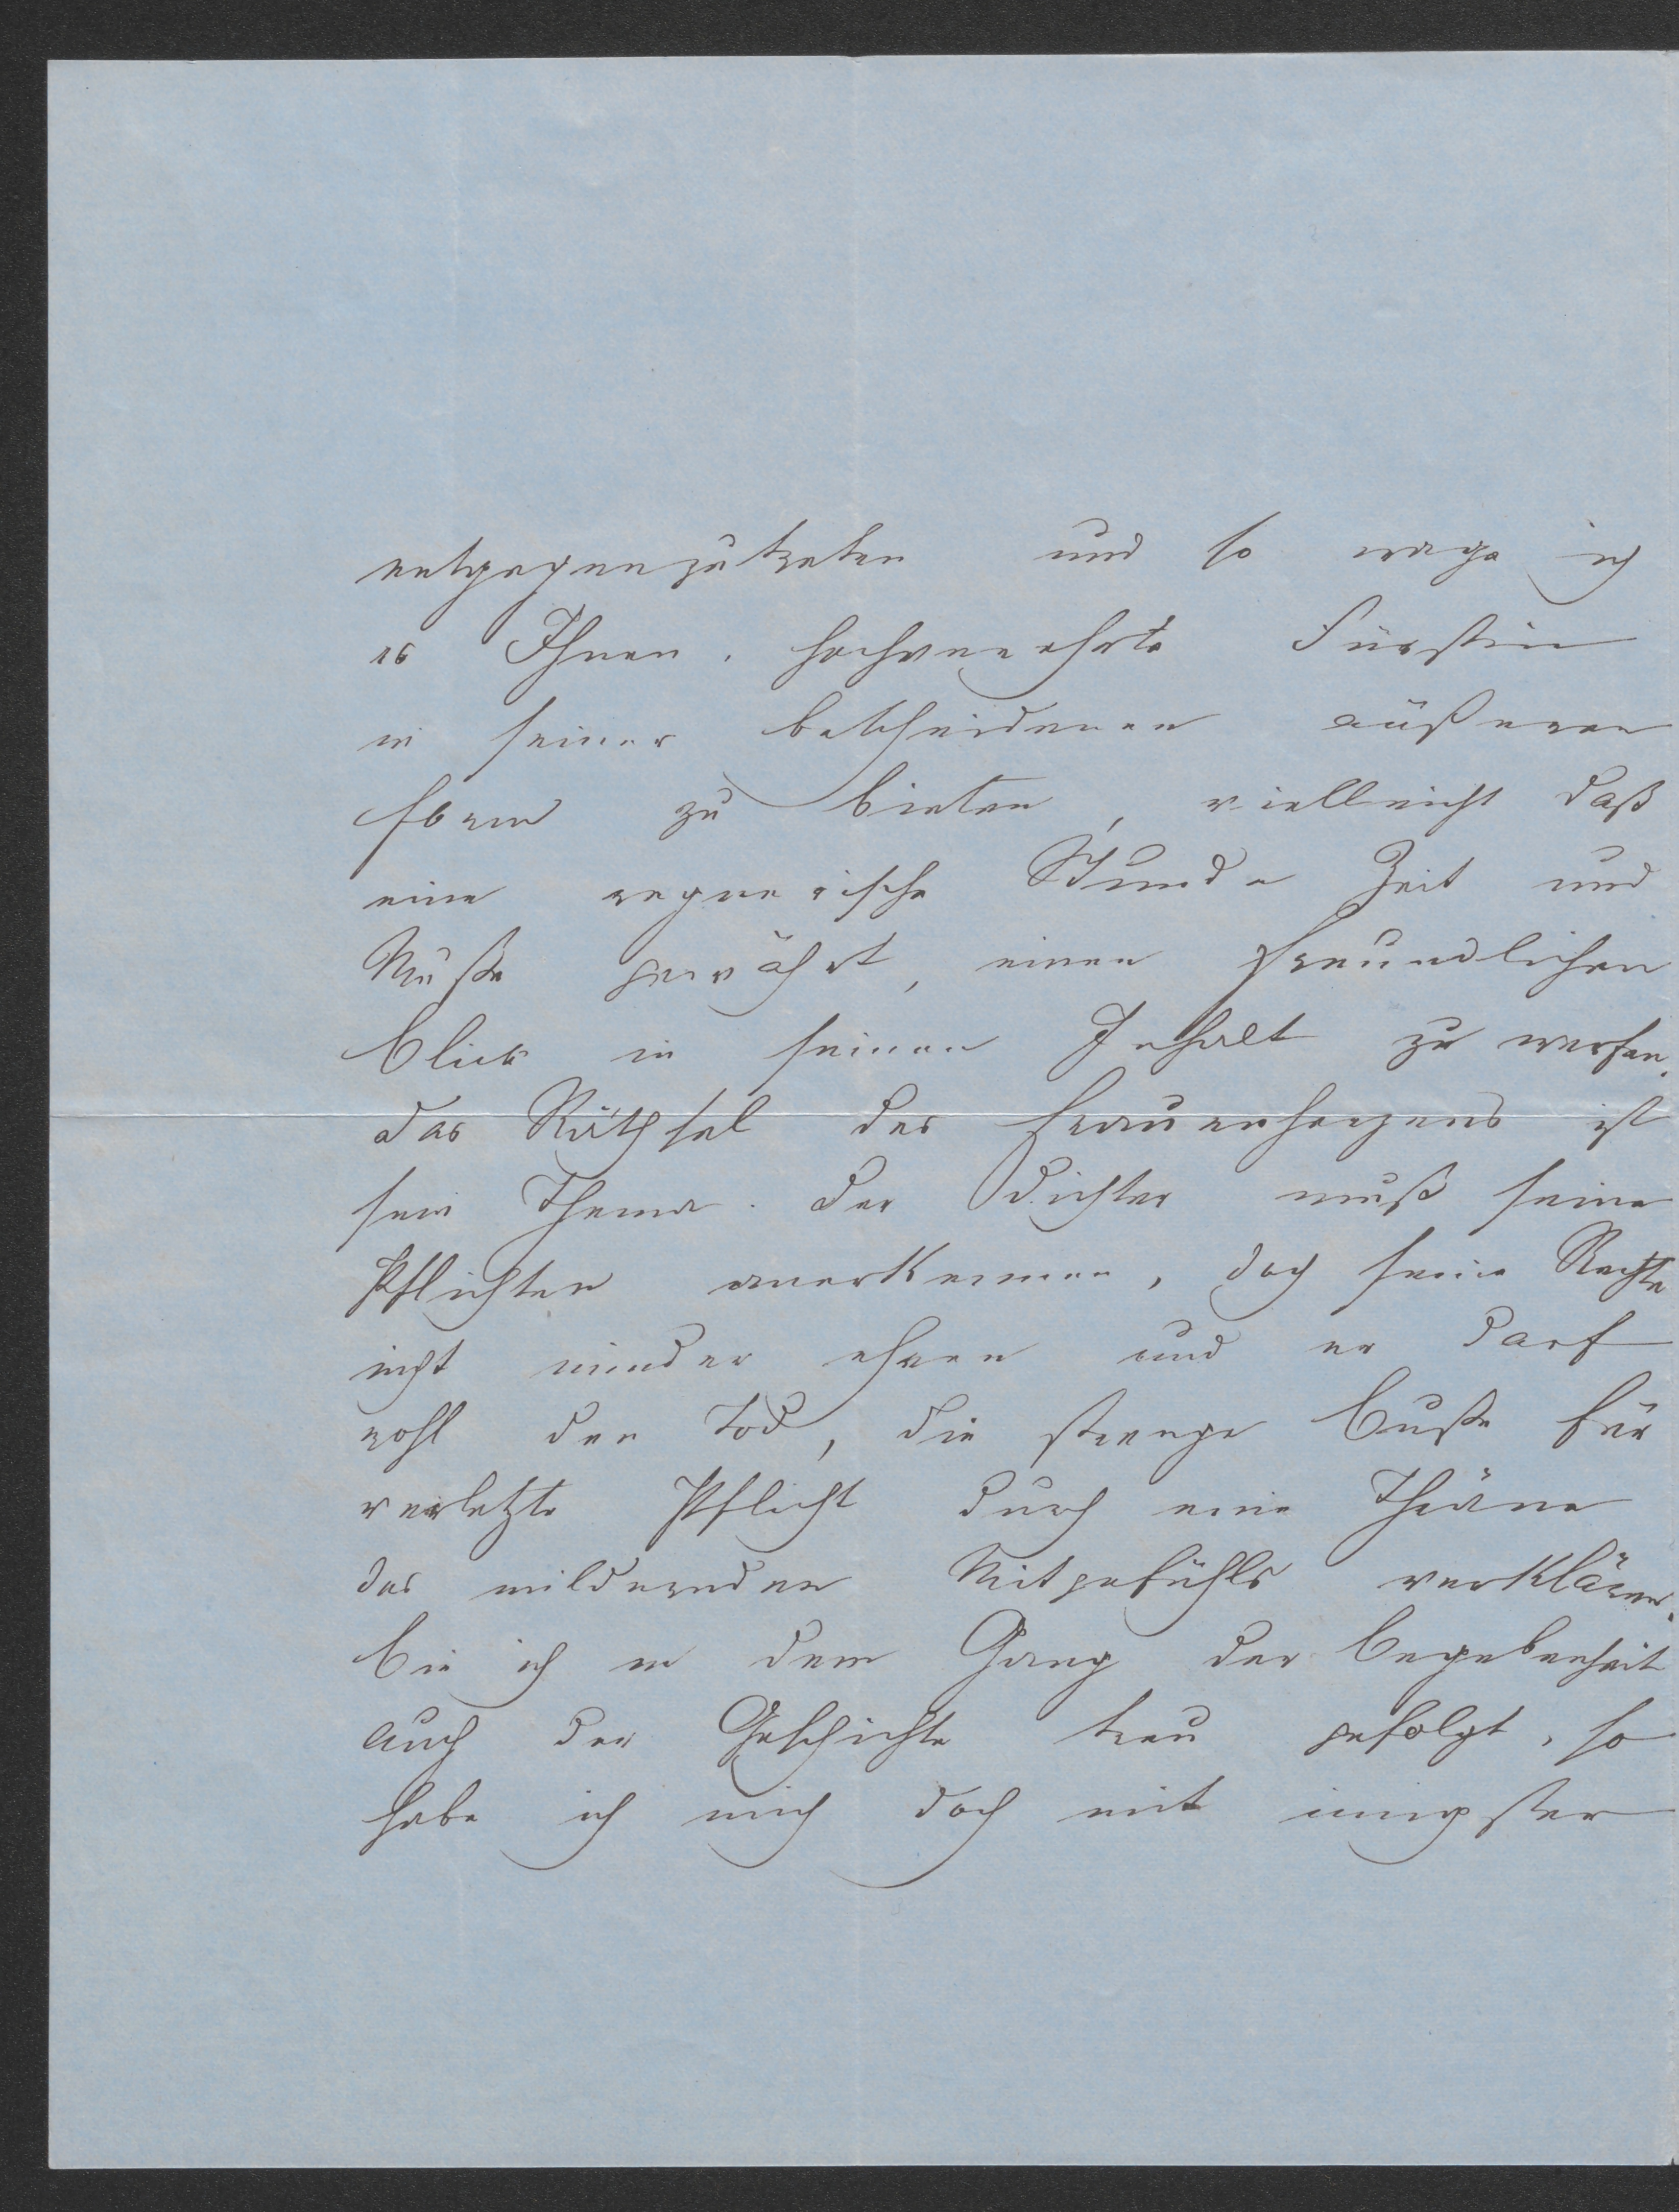 entgegenzutreten und so wage ich
es Ihnen, hochverehrte Fürstin
in seiner bescheidenen äußeren
Form zu bieten, vielleicht daß
eine regnerische Stunde Zeit und
Muße gewährt, einen freundlichen
Blick in seinen Inhalt zu werfen.
Das Räthsel des Frauenherzens ist
sein Thema. Der Dichter muß seine
Pflichten anerkennen, doch seine Rechte
nicht minder ehren und er darf
wohl den Tod, die strenge Buße für
verletzte Pflicht durch eine Thräne
des mildernden Mitgefühls verklären.
Bin ich in dem Gang der Begebenheit
auch der Geschichte treu gefolgt, so
habe ich mich doch mit innigster